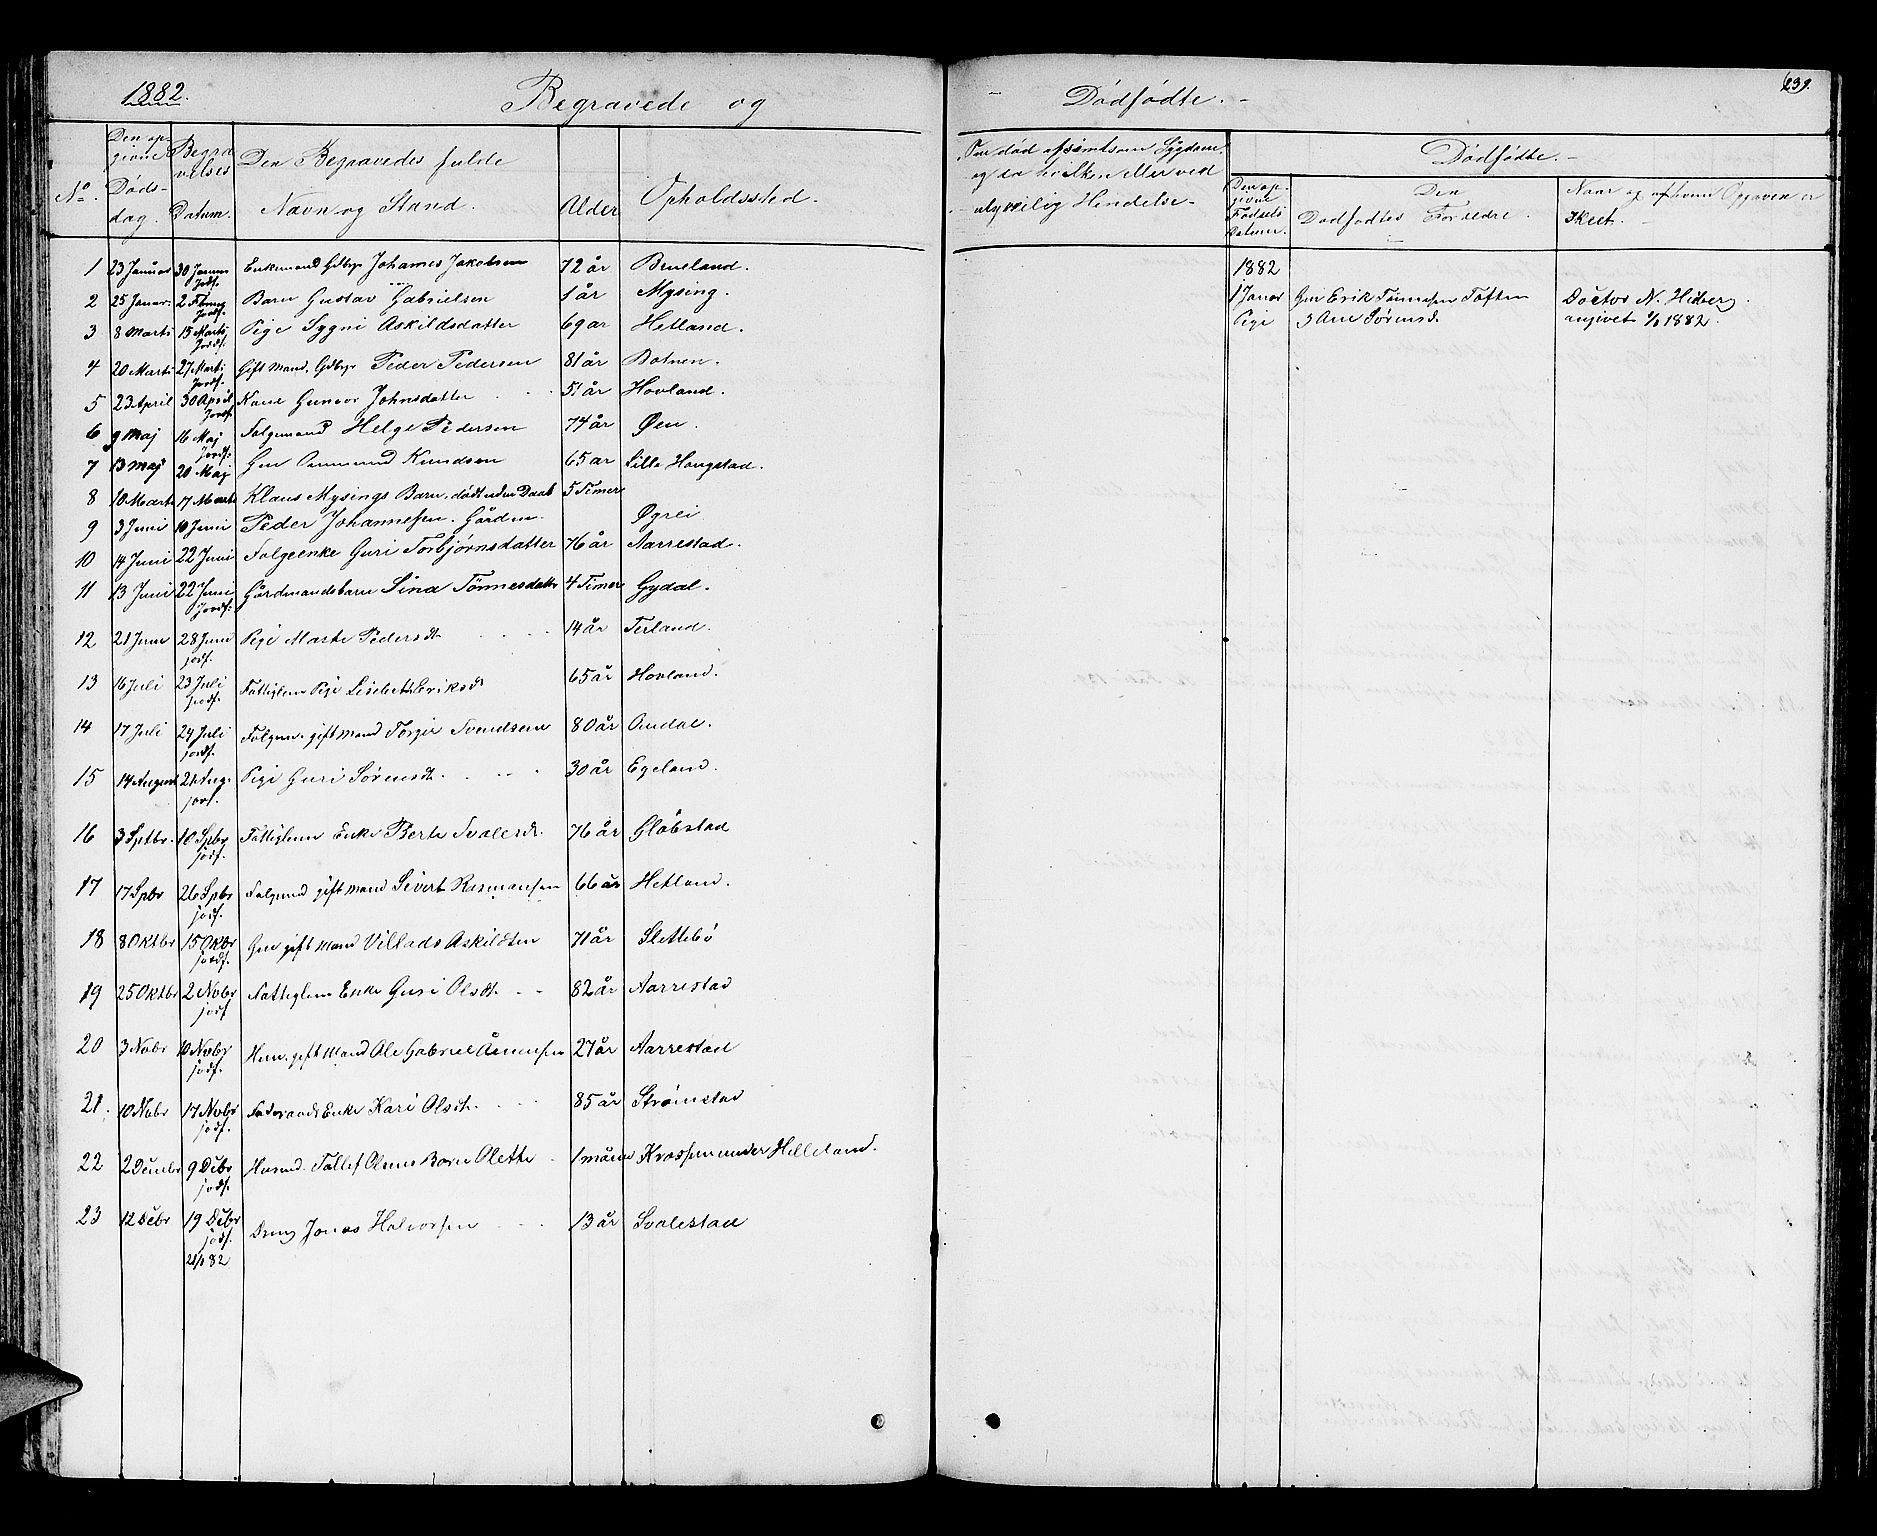 1882.
Begravede og
Dødfødte. -
239.
No.
Den op-
givne
Døds-
dag.
Begra
velses
Datum.
Den Begravedes fulde
Navn og Stand.
Alder
Opholdssted.
og en hvilken eller ved
ulykkelig Hendelse -
Dødfødte. -
Den op-
givne
Fødsels
Datum.
Den
Dødfødtes Forældre.
Naar og af hvem Opgaven er
Skeet. -
1 23 Januar 30 Januar Enkemand Gdbgr Johannes Jakobsen 72 år Brueland.
jordf.
2 25 Januar 2 Februar Barn Gustav Gabrielsen 1 år Mysing.
jordf.
3 8 Marts 15 Marts Pige Sygni Askildsdatter 69 ar Hetland.
jordf.
4 20 Marts 27 Marts Gift Mand, Gdbgr Peder Pedersen 81 år Botnen.
jordf.
5 23 April 30 April Kone Gunvor Johnsdatter 51 år Hovland.
jordf.
6 9 Maj 16 Maj Folgemand Helge Pedersen 74 år Øen.
jordf.
7 13 Maj 20 Maj Gm Ommund Knudsen 65 ar Lille Haugstad.
8 10 Marts 17 Marts Klaus Mysings Barn, død uden Daab 5 Timer
9 3 Juni 10 Juni Peder Johannesen. Gården. Øgrei
10 14 Juni 22 Juni Folgeenke Guri Torbjørnsdatter 76 år Aarrestad.
11 13 Juni 22 Juni Gårdmandsbarn Sina Tønnesdatter 4 Timer Gydal.
jordf.
12 21 Juni 28 Juni Pige Marte Pedersdt 14 år Terland.
jordf.
13 16 Juli 23 Juli Fattiglem Pige Lisebeth Eriksdt 65 år Hovland.
jordf.
14 17 Juli 24 Juli Folgem. gift Mand Torger Svendsen 80 år Omdal.
jordf.
15 14 August 21 Aug. Pige Guri Sørensdt. 30 år Egeland.
jorf.
16 3 Sptbr. 10 Spbr Fattiglem Enke Berte Svalesdt. 76 år Gløbstad
jodf.
17 17 Spbr 26 Spbr Folgmd gift Mand Sivert Rasmussen 66 år Hetland.
jodf.
18 8 Oktbr 15 Oktbr Gm gift Mand Villads Askildsen 71 år Slettebø
jordf.
19 25 Oktbr 2 Nobr Fattiglem Enke Guri Olsdt. 82 år Aarrestad
jodf
20 3 Nobr 10 Nobr Husm. gift Mand Ole Gabriel Ånensen 27 år Aarrestad
jodf.
21. 10 Nobr 17 Nobr Føderaads Enke Kari Olsdt. 85 år Strømstad
jodf.
22 2 Decmbr 9 Debr Husmd. Tollef Olsens Barn Olette 1 måned Krossen under Helleland.
jodf.
23 12 Debr 19 Debr Dreng Jonas Halvorsen 13 år Svalestad
jodf.
21/1 82
1882
1 Januar Gm Erik Tønnesen Toften Doctor N. Hidberg.
Pige & Ane Sørensd. angivet 4/1 1882.